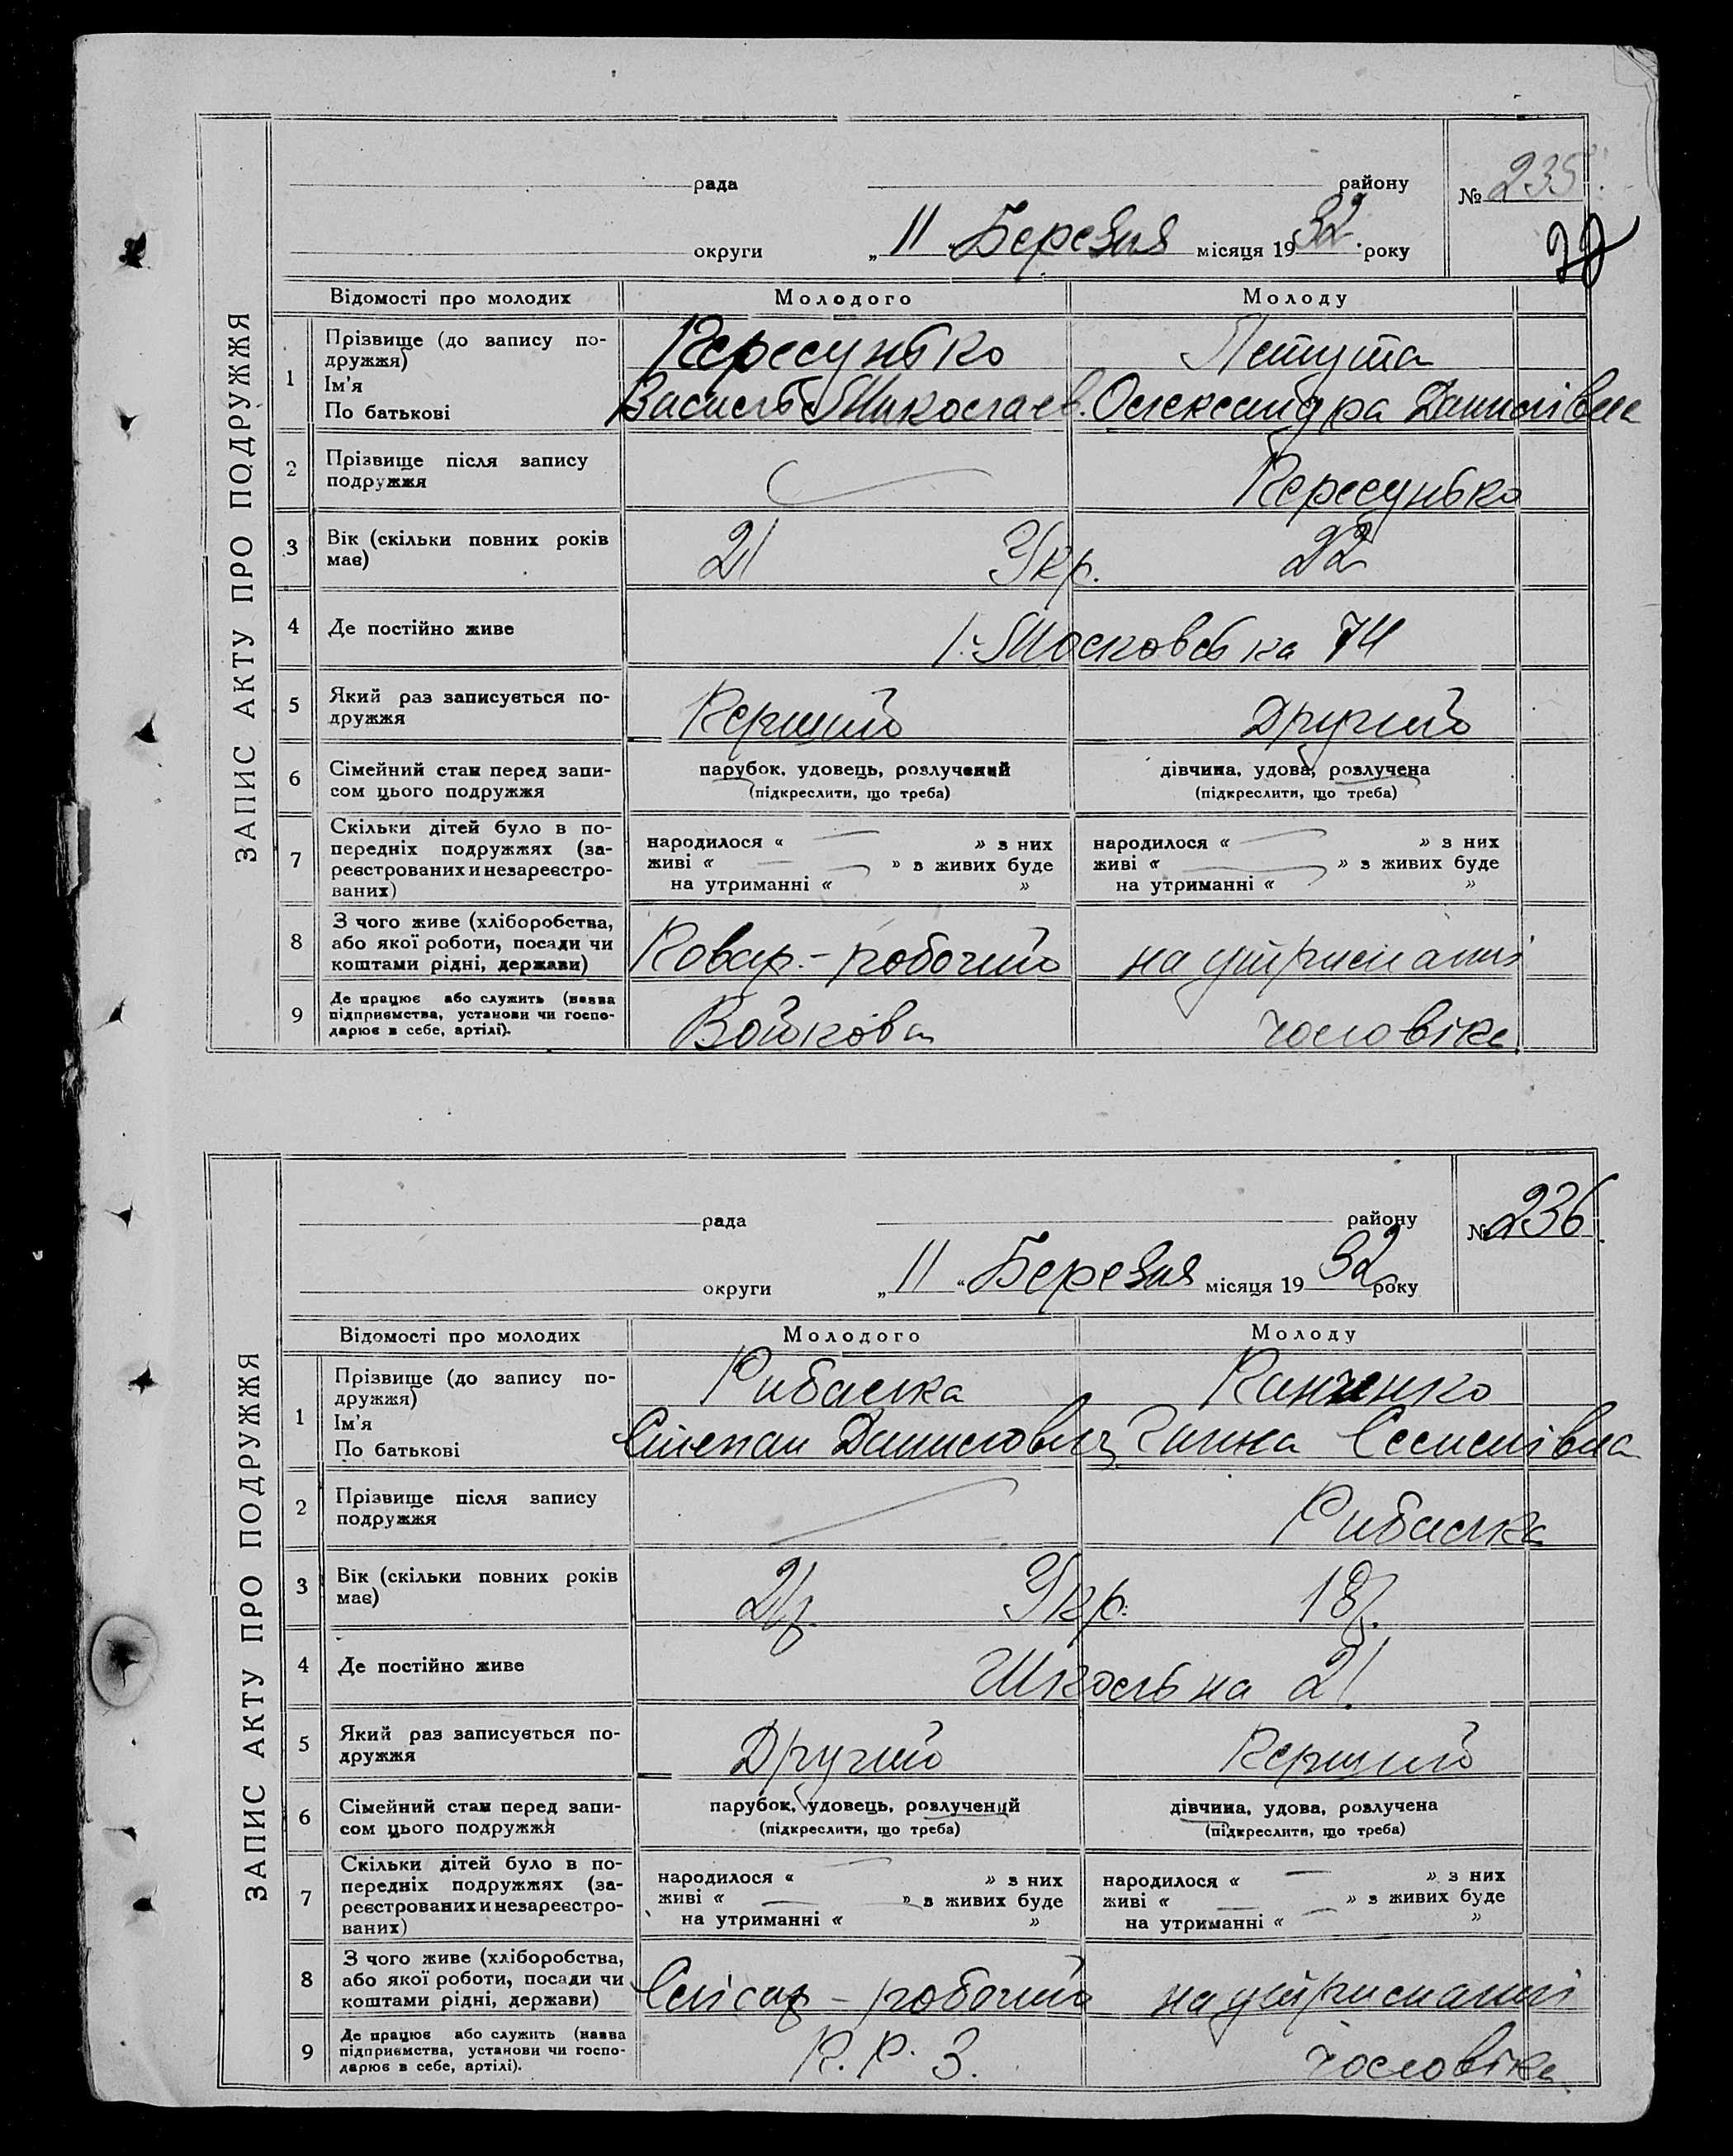 ЗАПИС АКТУ ПРО ПОДРУЖЖЯ
рада району № 235
округи „ 11 “ Березня місяця 1932 року
Відомості про молодих Молодого Молоду
1 Прізвище (до запису по-
дружжя)
Ім'я
По батькові
Пересунько
Василь Миколаєв.
Летута
Олександра Данилівна
2 Прізвище після запису
подружжя
Пересунько
3 Вік (скільки повних років
має)
21 Укр. 22
4 Де постійно живе
Московська 74
5 Який раз записується по-
дружжя
Перший Другий
6 Сімейний стан перед запи-
сом цього подружжя
парубок, удовець, розлучений
(підкреслити, що треба)
дівчина, удова, розлучена
(підкреслити, що треба)
7 Скільки дітей було в по-
передніх подружжях (за-
реєстрованих и незареєстро-
ваних)
народилося « » з них
живі « » з живих буде
на утриманні « »
народилося « » з них
живі « » з живих буде
на утриманні « »
8 З чого живе (хліборобства,
або якої роботи, посади чи
коштами рідні, держави)
Товар. - робочий
на утриманні
9 Де працює або служить (назва
підприємства, установи чи госпо-
дарює в себе, артілі).
Войкова
чоловіка
ЗАПИС АКТУ ПРО ПОДРУЖЖЯ
рада району № 236
округи „ 11 “ Березня місяця 1932 року
Відомості про молодих Молодого Молоду
1 Прізвище (до запису по-
дружжя)
Ім'я
По батькові
Рибалка
Степан Данилович
Ганна
2 Прізвище після запису
подружжя
Рибалка
3 Вік (скільки повних років
має)
Укр. 18
4 Де постійно живе
Шкільна 21
5 Який раз записується по-
дружжя
Другий Перший
6 Сімейний стан перед запи-
сом цього подружжя
парубок, удовець, розлучений
(підкреслити, що треба)
дівчина, удова, розлучена
(підкреслити, що треба)
7 Скільки дітей було в по-
передніх подружжях (за-
реєстрованих и незареєстро-
ваних)
народилося « » з них
живі « » з живих буде
на утриманні « »
народилося « » з них
живі « » з живих буде
на утриманні « »
8 З чого живе (хліборобства,
або якої роботи, посади чи
коштами рідні, держави)
Слісар - робочий
на утриманні
9 Де працює або служить (назва
підприємства, установи чи госпо-
дарює в себе, артілі).
К. Р. З.
чоловіка